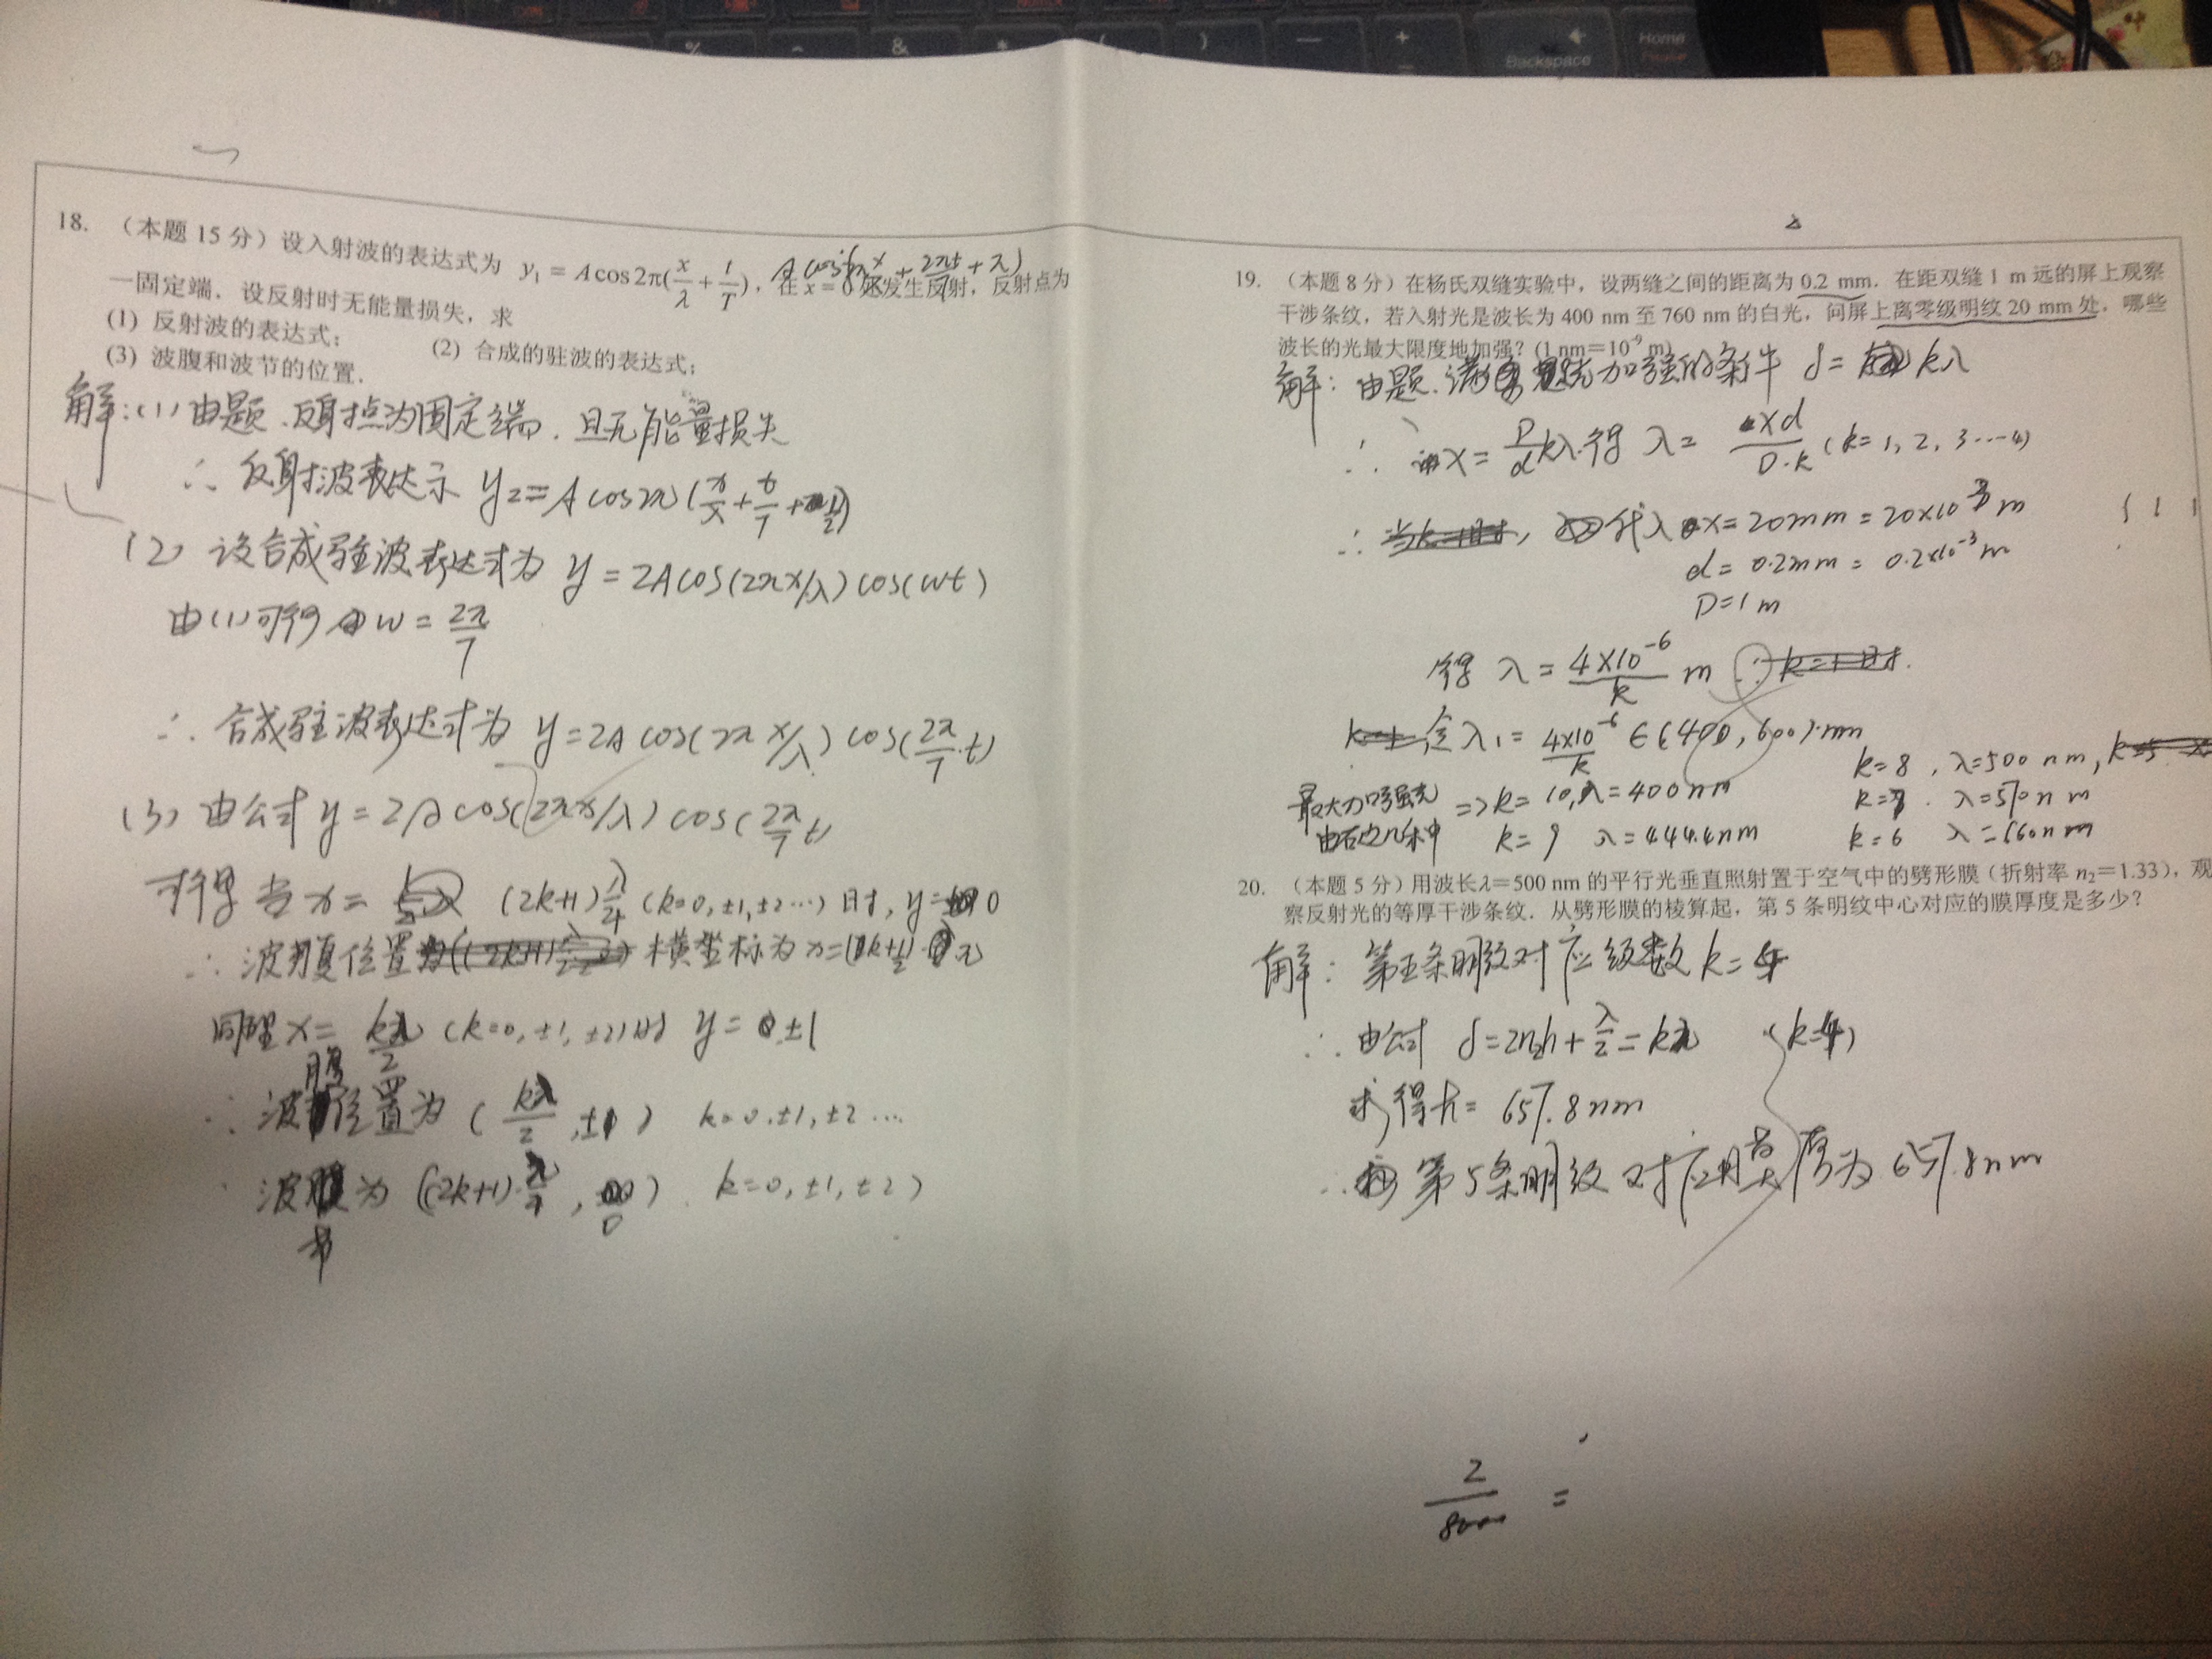 %
&
*
(
)
—
+
Backspace
Home
18. （本题 15 分）设入射波的表达式为 y₁ = A cos 2π(x/λ + t/T)，在 x = 0 处发生反射，反射点为
一固定端．设反射时无能量损失，求
(1) 反射波的表达式； (2) 合成的驻波的表达式；
(3) 波腹和波节的位置．
解：(1) 由题．反射点为固定端．且无能量损失
∴ 反射波表达示 y₂ = A cos2π(x/λ + t/T + 1/2)
(2) 设合成驻波表达式为 y = 2A cos(2πx/λ) cos(wt)
由(1)可得 w = 2π/T
∴ 合成驻波表达式为 y = 2A cos(2πx/λ) cos(2π/T·t)
(3) 由公式 y = 2A cos(2πx/λ) cos(2π/T t)
求得 当 x = (2k+1)λ/4 (k=0, ±1, ±2…) 时, y = 0
∴ 波腹位置 横坐标为
同理 x = kλ/2 (k=0, ±1, ±2) 时 y = ±1
∴ 波腹位置为 (kλ/2, ±1) k=0, ±1, ±2 …
波节为 ((2k+1)·λ/4, 0). k=0, ±1, ±2)
19. （本题 8 分）在杨氏双缝实验中，设两缝之间的距离为 0.2 mm．在距双缝 1 m 远的屏上观察
干涉条纹，若入射光是波长为 400 nm 至 760 nm 的白光，问屏上离零级明纹 20 mm 处，哪些
波长的光最大限度地加强？(1 nm＝10⁻⁹ m)
解：由题．满 加强的条件 δ = kλ
∴ x = D/d kλ 得 λ = xd/D·k (k=1, 2, 3 ……)
∴ 代入 x = 20mm = 20×10⁻³ m
d = 0.2mm = 0.2×10⁻³ m
D = 1 m
得 λ = 4×10⁻⁶/k m
令 λ₁ = 4×10⁻⁶/k ∈ (400, 600) nm
最大加强光 => k = 10, λ = 400nm
k = 9 λ = 444.4nm
k = 8, λ = 500 nm,
k = 7. λ = 570 n m
k = 6 λ = 660n m
20. （本题 5 分）用波长λ＝500 nm 的平行光垂直照射置于空气中的劈形膜（折射率 n₂＝1.33），观
察反射光的等厚干涉条纹．从劈形膜的棱算起，第 5 条明纹中心对应的膜厚度是多少？
解：第五条明纹对应级数 k = 4
∴ 由公式 δ = 2n₂h + λ/2 = kλ (k=4)
求得 h = 657.8nm
∴ 第5条明纹对应膜厚为 657.8nm
2/8000 =